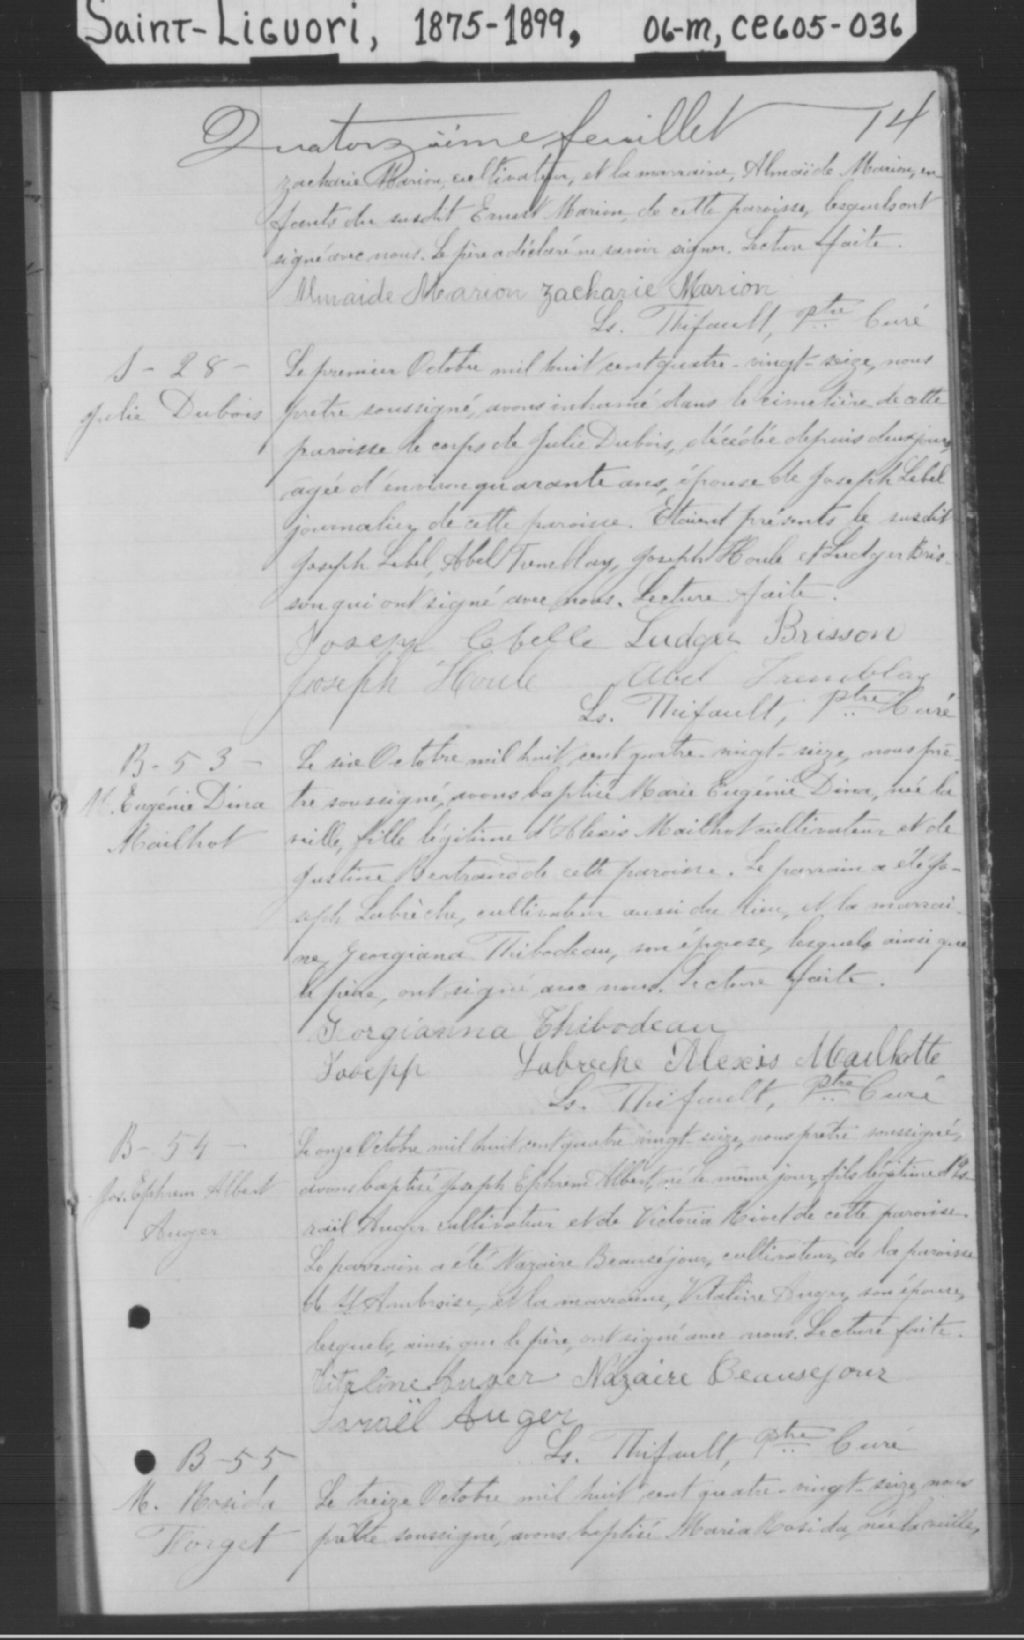 Saint-Liguori, 1875-1899, 06-m, CE605-036
Quatorzième feuillet 14
Zacharie Marion, cultivateur, et la marraine, Almaïde Marion, en-
fants du susdit Ernest Marion, de cette paroisse, lesquels ont
signé avec nous. Le père a déclaré ne savoir signer. Lecture faite.
Almaide Marion Zacharie Marion
Ls. Thifault, Ptre Curé
S - 28 -
Julie Dubois
Le premier Octobre mil huit cent quatre-vingt-seize, nous
prêtre soussigné, avons inhumé dans le cimetière de cette
paroisse le corps de Julie Dubois, décédée depuis deux jours,
agée d'environ quarante ans, épouse de Joseph Lebel
journalier, de cette paroisse. Etaient présents le susdit
Joseph Lebel, Abel Tremblay, Joseph Houle et Ludger Bris-
son qui ont signé avec nous. Lecture faite.
Joseph Lebelle Ludger Brisson
Joseph Houle Abel Tremblay
Ls. Thifault, Ptre Curé
B - 53 -
M. Eugénie Dina
Mailhot
Le six Octobre mil huit cent quatre-vingt-seize, nous prê-
tre soussigné, avons baptisé Marie Eugénie Dina, née la
veille, fille légitime d'Alexis Mailhot cultivateur et de
Justine Bertrand de cette paroisse. Le parrain a été Jo-
seph Labrèche, cultivateur aussi du lieu, et la marrai-
ne, Georgiana Thibodeau, son épouse, lesquels ainsi que
le père, ont signé avec nous. Lecture faite.
Georgianna Thibodeau
Joseph Labreche Alexis Maillotte
Ls. Thifault, Ptre Curé
B - 54 -
Jos. Ephrem Albert
Auger
Le onze Octobre mil huit cent quatre vingt-seize, nous prêtre soussigné,
avons baptisé Joseph Ephrem Albert, né le même jour, fils légitime d'Is-
raël Auger cultivateur et de Victoria Rivet de cette paroisse.
Le parrain a été Nazaire Beauséjour, cultivateur, de la paroisse
de St Ambroise, et la marraine, Vitaline Auger, son épouse,
lesquels, ainsi que le père, ont signé avec nous. Lecture faite.
Vitaline Auger Nazaire Beausejour
Israël Auger
Ls. Thifault, Ptre Curé
B - 55
M. Rosida
Forget
Le treize Octobre mil huit cent quatre-vingt-seize, nous
prêtre soussigné, avons baptisé Maria Rosida, née la veille,